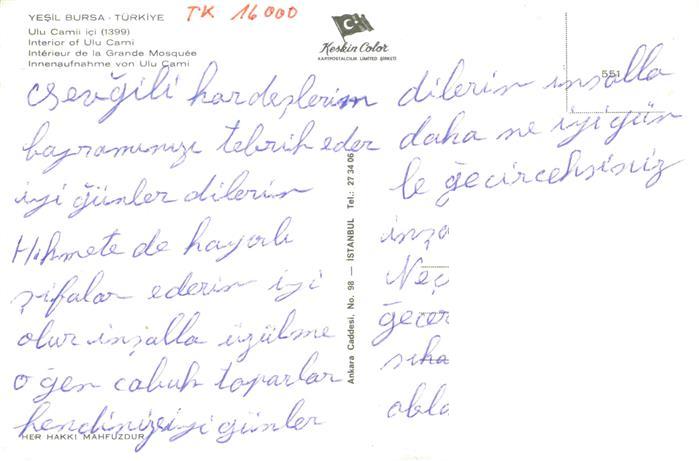 YEŞİL BURSA - TÜRKİYE
Ulu Camii içi (1399)
Interior of Ulu Cami
Intérieur de la Grande Mosquée
Innenaufnahme von Ulu Cami
TK 16000
Keskin Color
KARTPOSTALCILIK LİMİTED ŞİRKETİ
551
Sevğili kardeşlerim
bayramınızı tebrik eder
iyi ğünler dilerim
Hikmete de hayırlı
şifalar ederim iyi
olur inşalla üzülme
oğen cabuk toparlar
kendinize iyi ğünler
dilerim inşalla
daha ne iyi ğün
le ğecirceksiniz
inşa
Neç
ğecer
abla
Ankara Caddesi, No. 98 — İSTANBUL Tel.: 27 34 06
HER HAKKI MAHFUZDUR